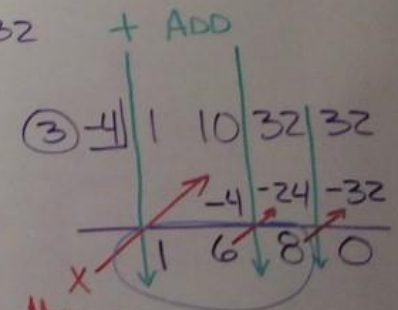 32
+ ADD
③ -4| 1 10 32 32
-4 -24 -32
1 6 8 0
X